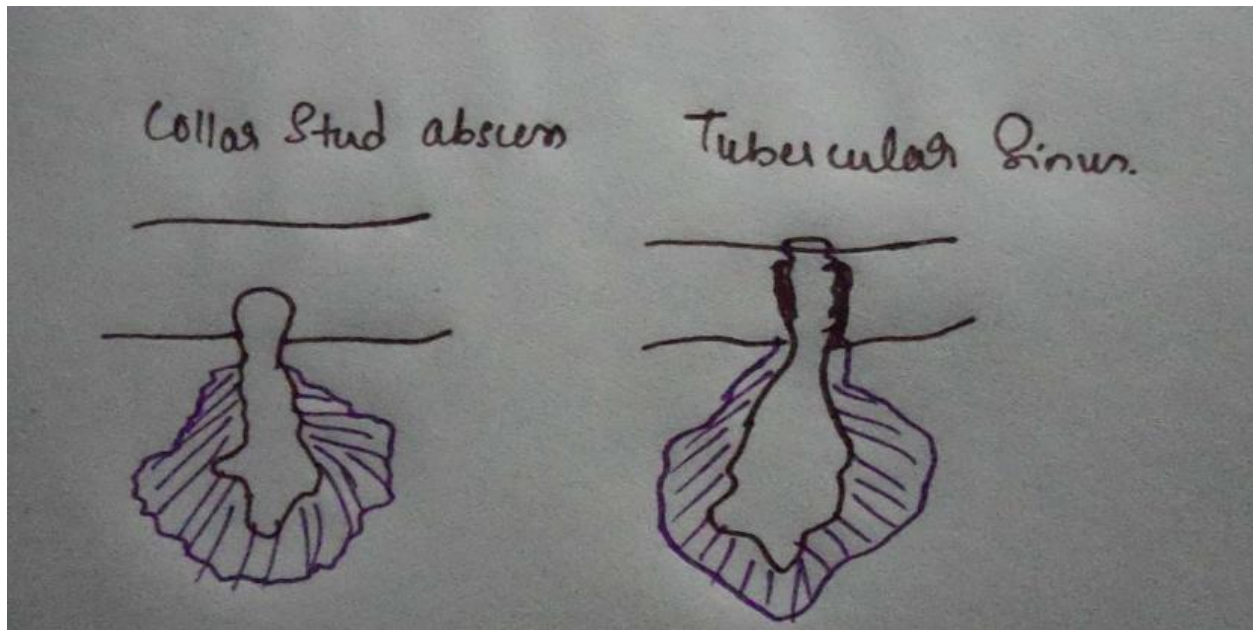 Collar Stud abscess Tubercular Sinus.